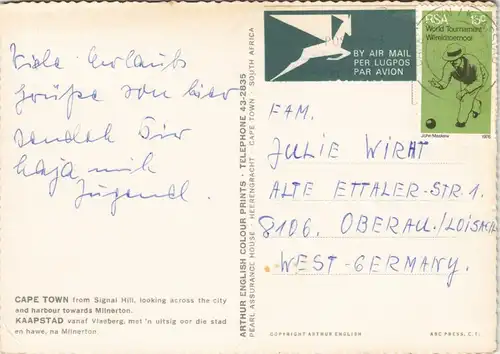 Viele Urlaubs
grüße von hier
sendet Dir
Kaja mit
Jugend.
CAPE TOWN from Signal Hill, looking across the city
and harbour towards Milnerton.
KAAPSTAD vanaf Vlaeberg, met 'n uitsig oor die stad
en hawe, na Milnerton.
ARTHUR ENGLISH COLOUR PRINTS · TELEPHONE 43-2835
PEARL ASSURANCE HOUSE · HEERENGRACHT · CAPE TOWN · SOUTH AFRICA
BY AIR MAIL
PER LUGPOS
PAR AVION
RSA 15c
World Tournament
Wêreldtoernooi
John Meeskew 1976
FAM.
JULIE WIRHT
ALTE ETTALER-STR. 1.
8106. OBERAU/LOISACH
WEST-GERMANY.
COPYRIGHT ARTHUR ENGLISH
ABC PRESS, C.T.